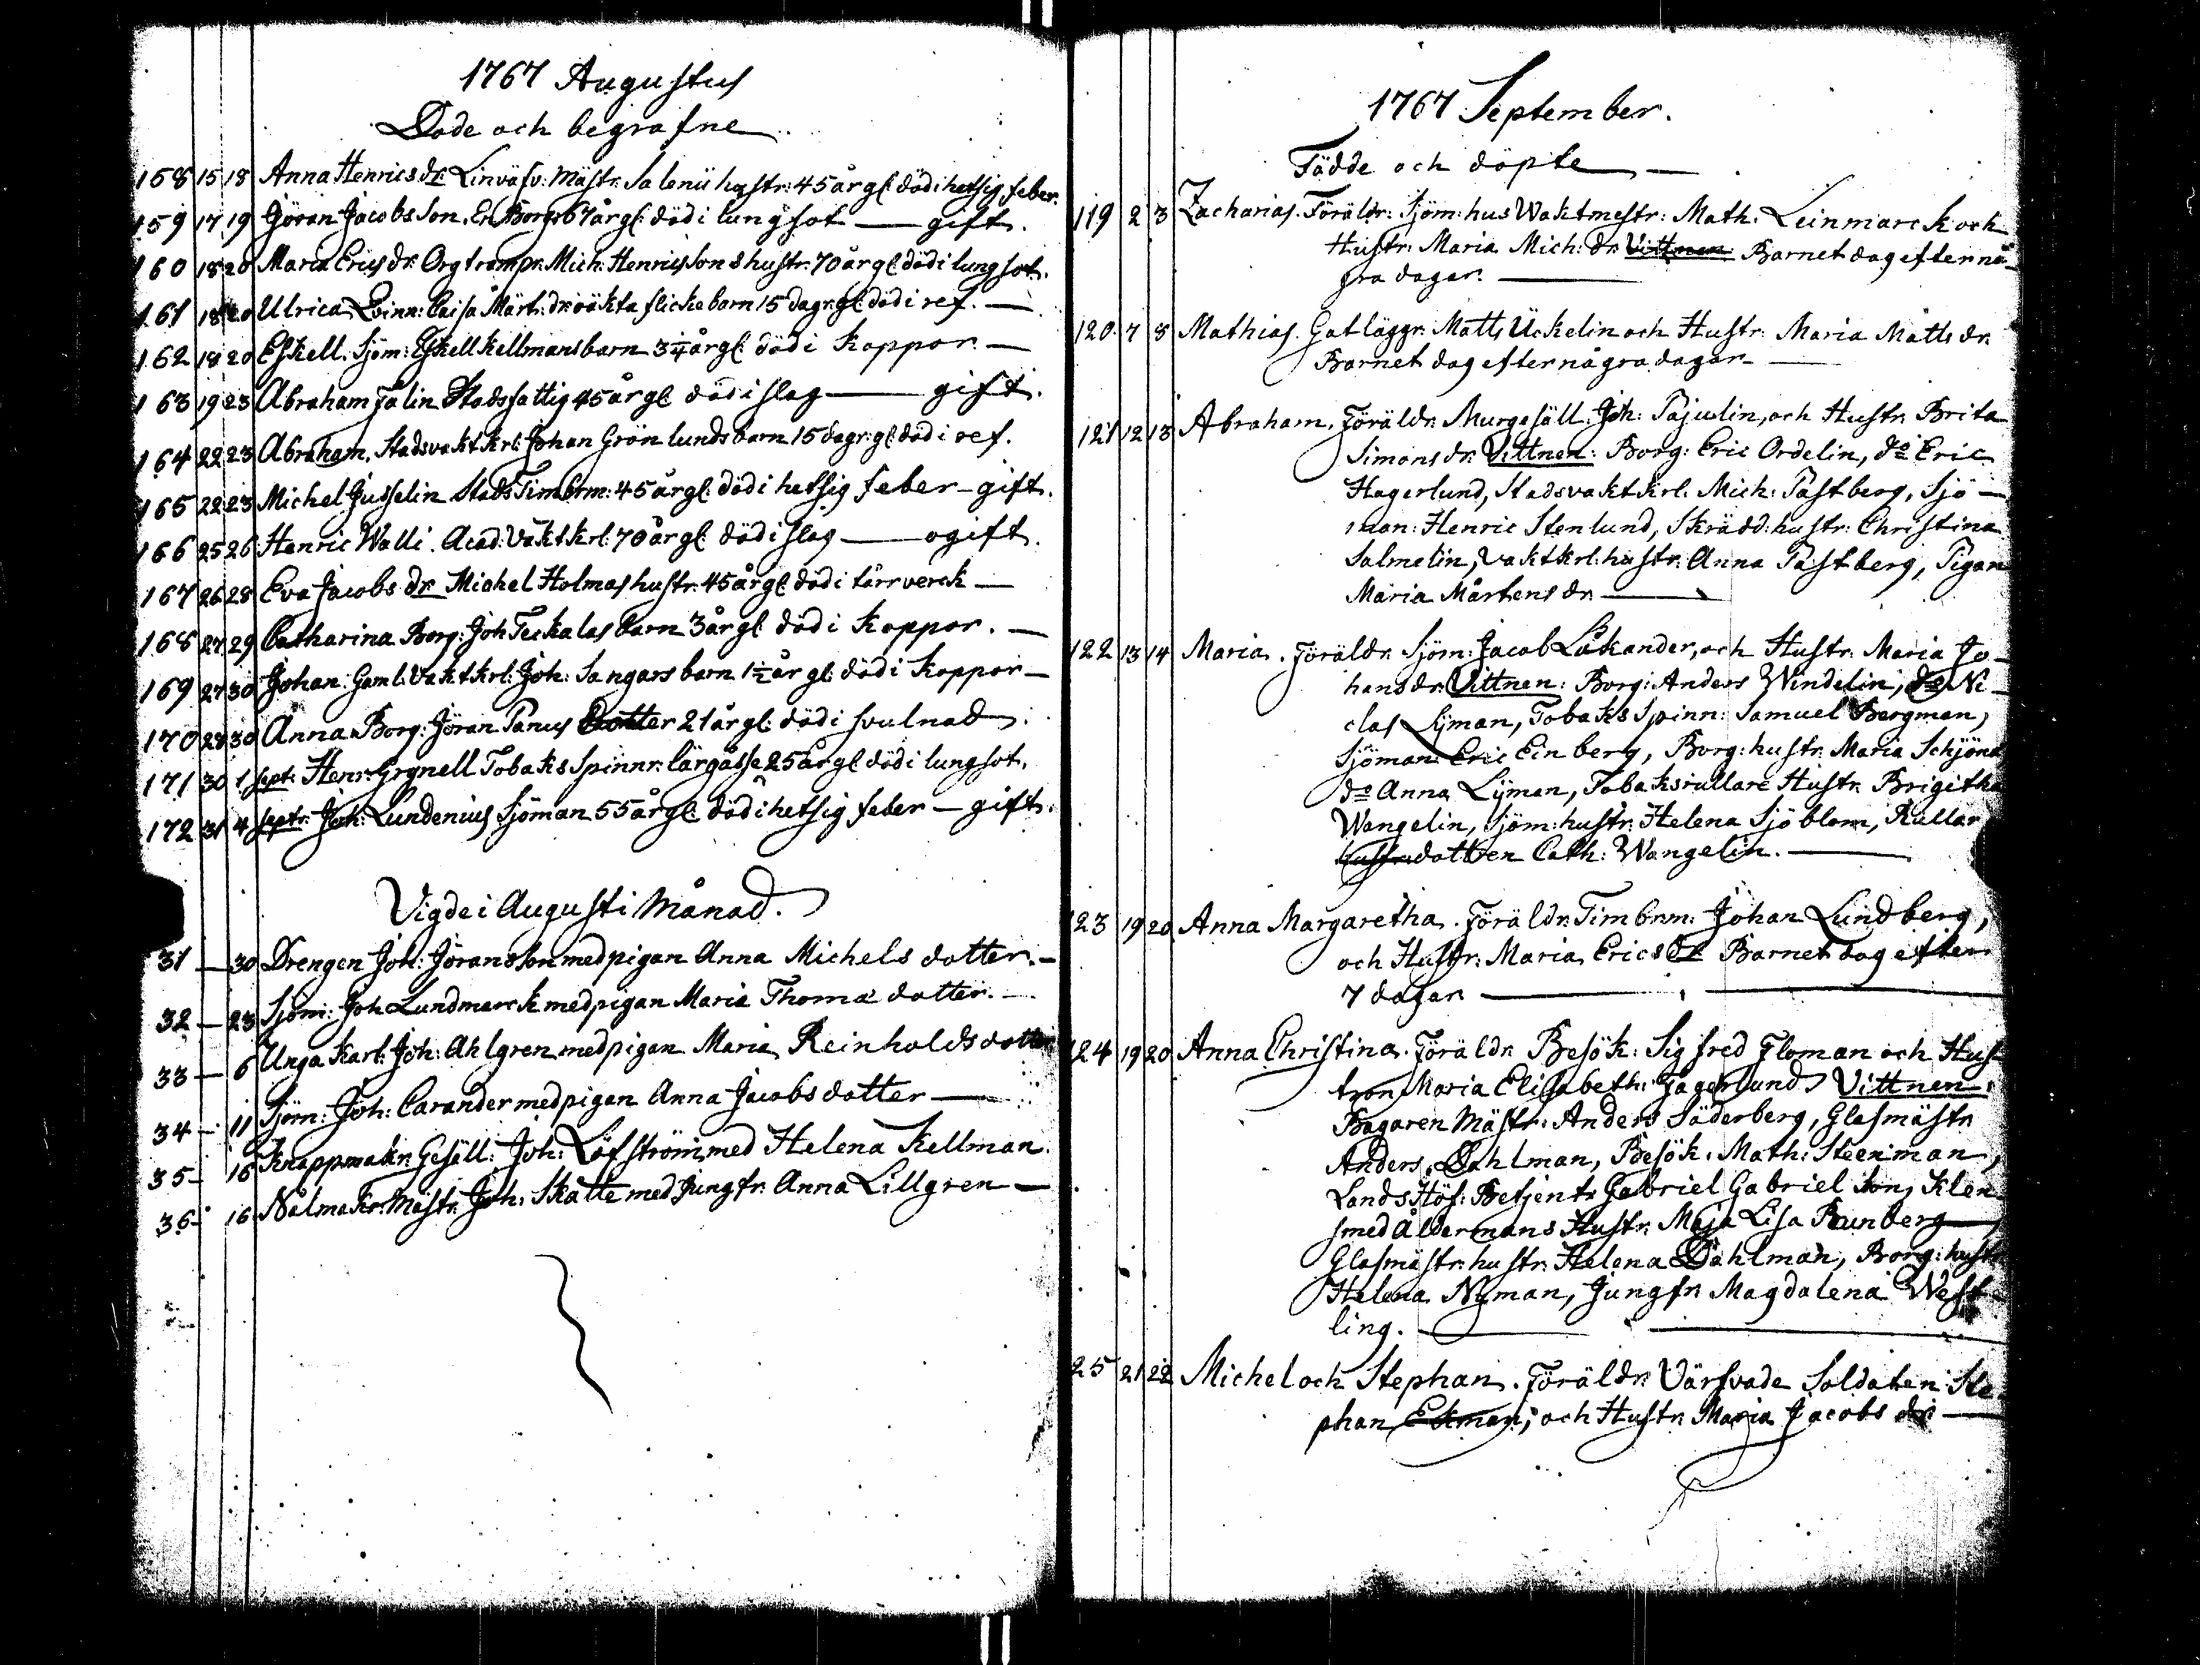 1767 Augustus
Döde och begrafne
158 15 18 Anna Henrics dr. Linväfv: Mästr. Salenii hustr: 45 år gl: död i hetsig feber.
159 17 19 Jöran Jacobsson. Borg: 67 år gl: död i lungsot — gift.
160 18 20 Maria Erics dr. Orgtramp: Mich: Henrics Sons hustr. 70 år gl: död i lungsot.
161 18 20 Ulrica Qvinn: Caisa Märt: dr. oäkta flickebarn 15 dagr. gl: död i ref. —
162 18 20 Eskell. Sjöm: Eskell Kellmans barn 3 1/4 år gl: död i Koppor. —
163 19 23 Abraham Falin Stadsfattig 45 år gl: död i slag — gift.
164 22 23 Abraham. Stadsvaktkrl: Johan Grönlunds barn 15 dagr: gl: död i ref.
165 22 23 Michel Jusselin Stads Timbrm: 45 år gl: död i hetsig feber — gift.
166 25 26 Henric Walli. Acad: Vaktkrl: 70 år gl: död i slag — ogift.
167 26 28 Eva Jacobs dr. Michel Holmas hustr: 45 år gl: död i tärrverck —
168 27 29 Catharina Borg: Joh Teckalas barn 3 år gl: död i Koppor. —
169 27 30 Johan. Gaml: Vaktkrl: Joh: Sangars barn 1 1/2 år gl: död i Koppor —
170 28 30 Anna Borg: Jöran Panus Dotter 21 år gl: död i svulnad.
171 30 1 sept: Henr. Grgnell Tobaks Spinnr: lärgåsse 25 år gl: död i lungsot.
172 31 4 septr: Joh: Lundenius Sjöman 55 år gl: död i hetsig feber — gift.
Vigde i Augusti Månad.
31 — 30 Drengen Joh: Jöransson med pigan Anna Michels dotter. —
32 — 23 Sjöm: Joh Lundmarck med pigan Maria Thomæ dotter. —
33 — 6 Unga Karl: Joh: Ahlgren med pigan Maria Reinholds dotter
34 — 11 Sjöm: Joh: Carander med pigan Anna Jacobs dotter —
35 — 16 Knappmakr. Gesäll: Joh: Löfström med Helena Kellman.
36 — 16 Nålmakr: Mästr. Joh: Skatte med Jungfr: Anna Lillgren —
1767 September.
Födde och döpte —
119 2 3 Zacharias. Föräldr: Sjöm: hus Waktmestr: Math: Leinmarck och
Hustr: Maria Mich: dr. Vittnen Barnet dog efter nå-
gra dagar. —
120 7 8 Mathias. Gatläggr. Matts Uckelin och Hustr: Maria Matts dr.
Barnet dog efter några dagar —
121 12 13 Abraham. Föräldr. Murgesäll: Joh: Pajulin, och Hustr. Brita
Simons dr. Vittnen: Borg: Eric Ordelin, do Eric
Hagerlund, Stadsvaktkrl. Mich: Pastberg, Sjö-
man: Henric Stenlund, Skrädd: hustr: Christina
Salmelin, Vaktkrl: hustr. Anna Pastberg, Pigan
Maria Mårtens dr. —
122 13 14 Maria. Föräldr. Sjöm: Jacob Låkander, och Hustr. Maria Jo-
hans dr. Vittnen: Borg: Anders Windelin, do Ni-
clas Lijman, Tobaks Spinn: Samuel Bergman,
Sjöman: Eric Einberg, Borg: hustr. Maria Schjöna
do Anna Lijman, Tobaksrullare Hustr. Brigitha
Wangelin, Sjöm: hustr. Helena Sjöblom, Rullar
hustr. dottren Cath: Wangelin. —
123 19 20 Anna Margaretha. Föräldr. Timbrm: Johan Lundberg,
och Hustr: Maria Ericsdr. Barnet dog efter
7 dagar. —
124 19 20 Anna Christina. Föräldr. Besök: Sigfred Floman och Hus-
tron Maria Elisabeth: Jagerlund Vittnen:
Bagaren Mästr: Anders Söderberg, Glasmästr.
Anders Dahlman, Besök. Math: Steenman,
Lands Höf: Betjent: Gabriel Gabriel Son, Klen
smed Åldermans Hustr. Maja Lisa Runberg —
Glasmästr: hustr. Helena Dahlman, Borg: hustr.
Helena Nyman, Jungfr. Magdalena West-
ling. —
25 21 22 Michel och Stephan. Föräldr. Värfvade Soldaten Ste-
phan Ekman; och Hustr. Maria Jacobs dr. —